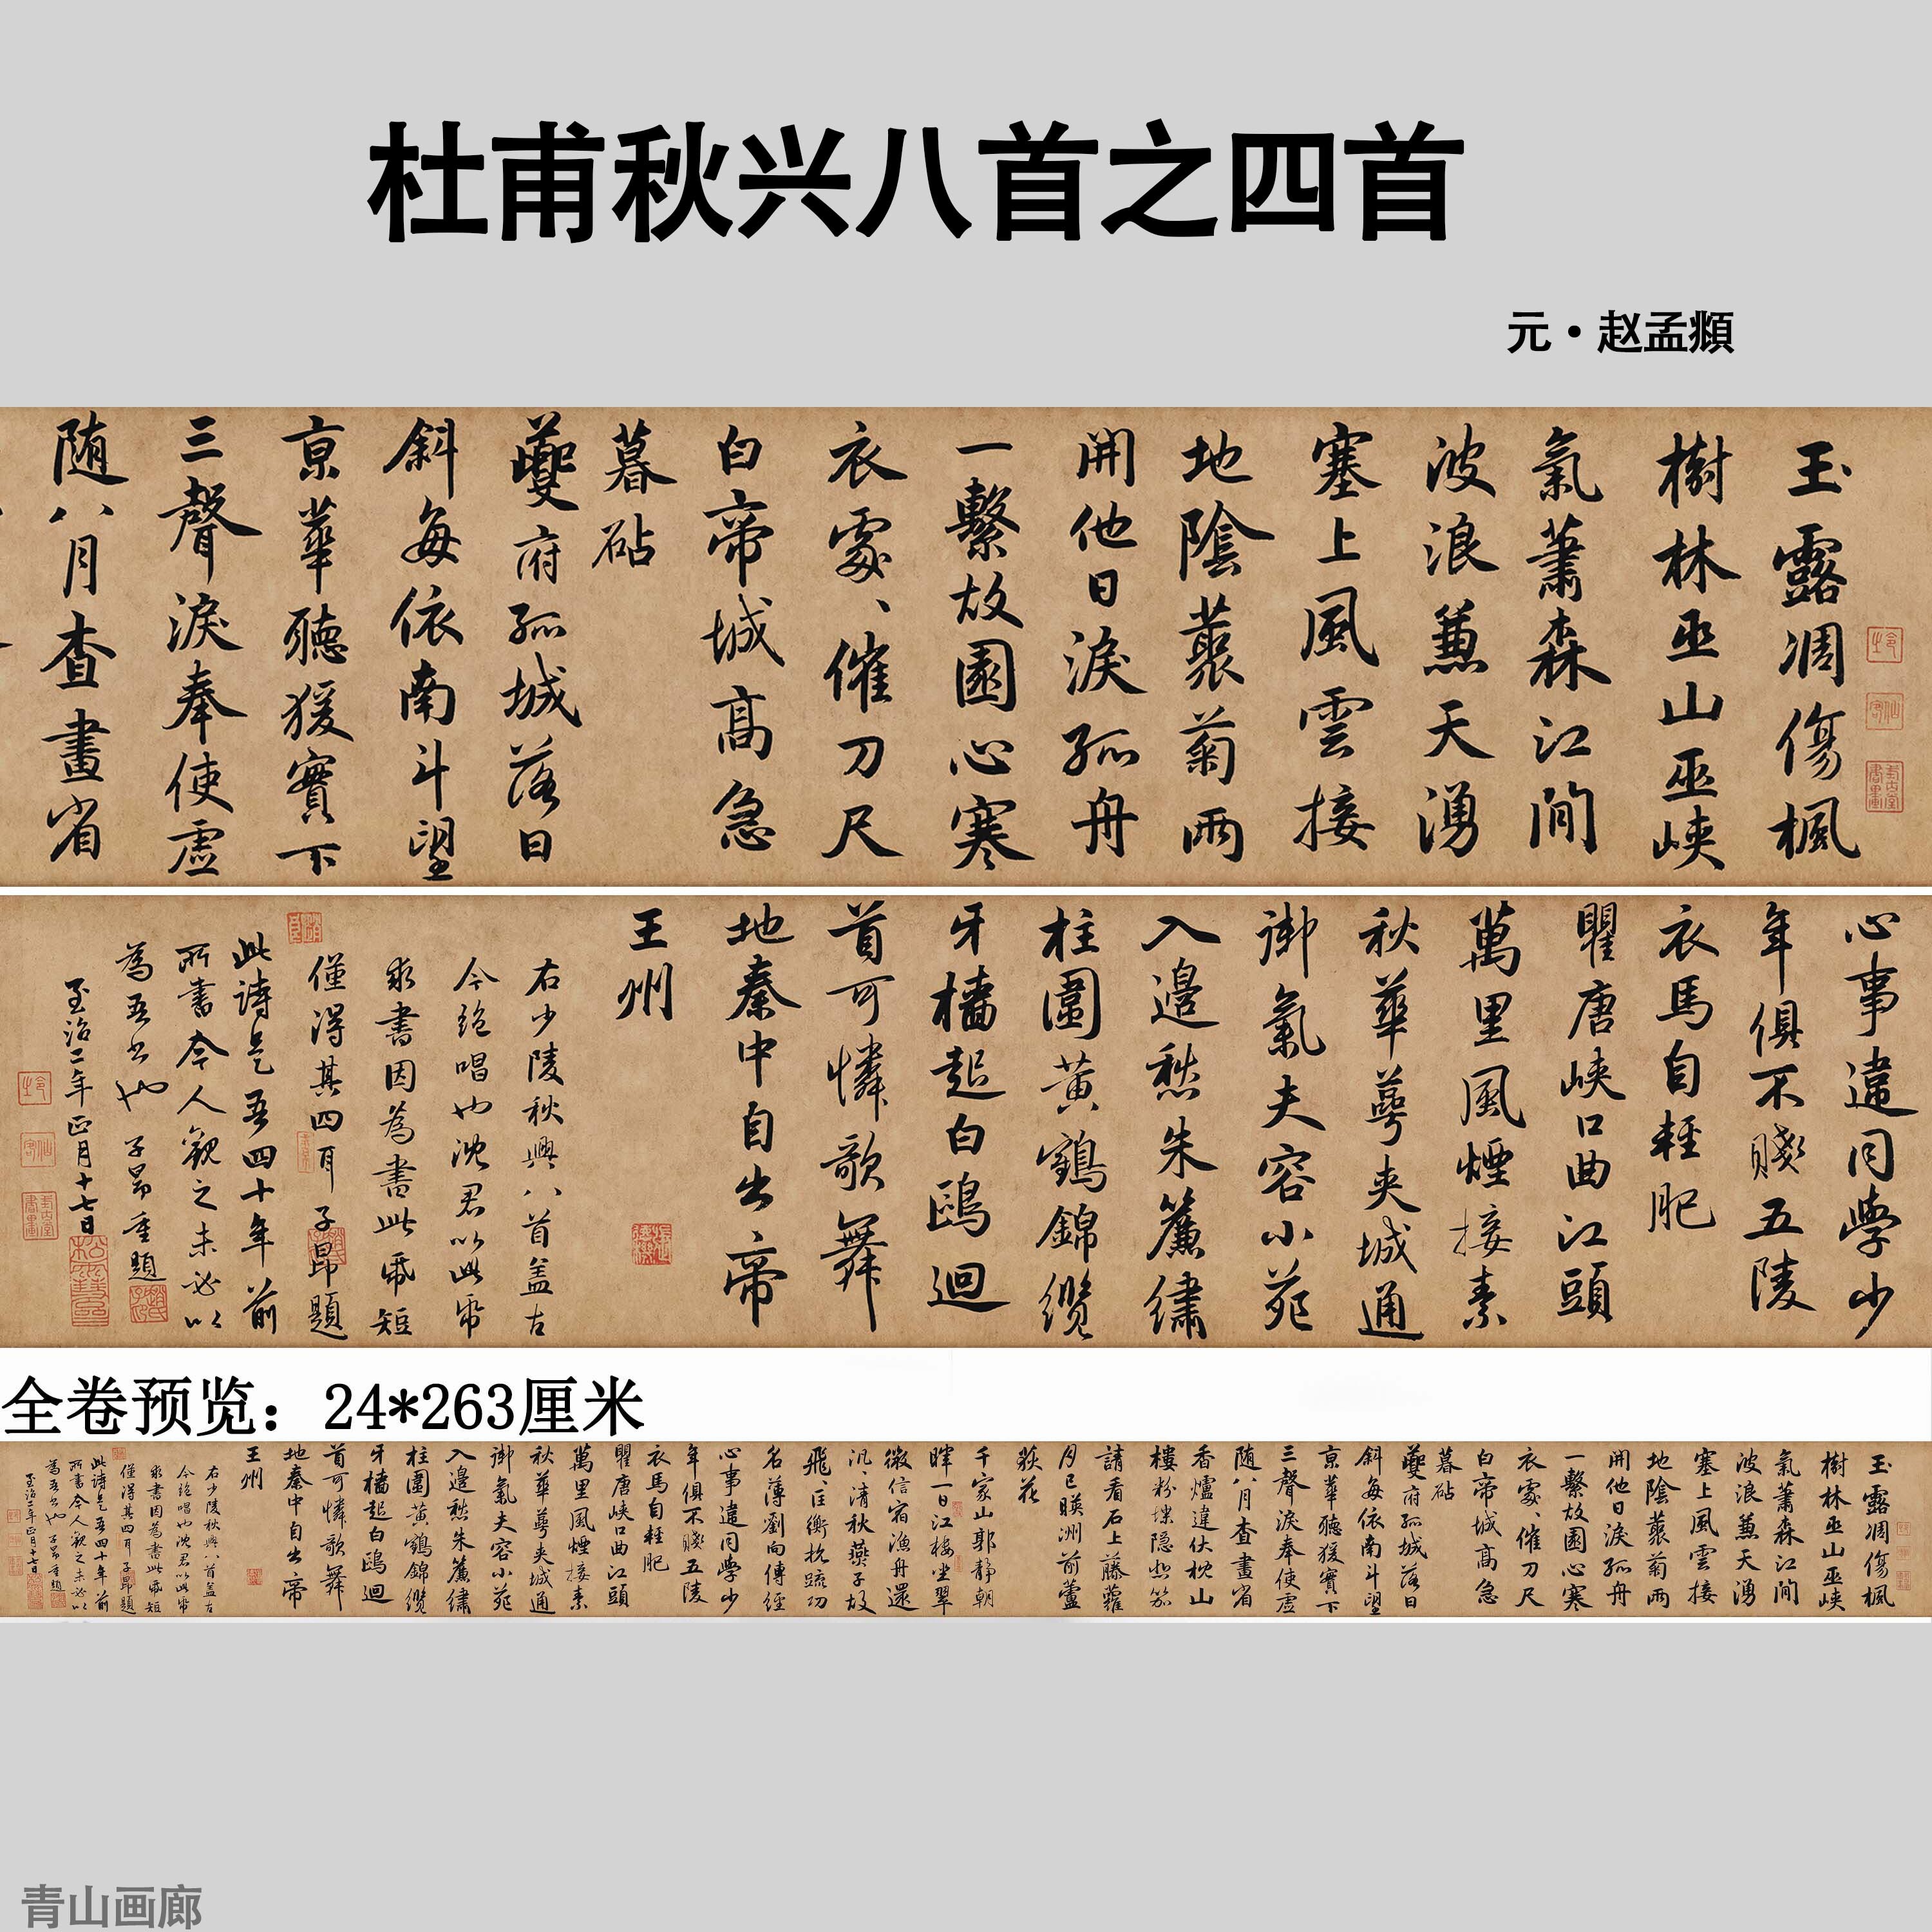 杜甫秋兴八首之四首
元·赵孟頫
玉露凋傷楓
樹林巫山巫峽
氣蕭森江間
波浪蒹天湧
塞上風雲接
地陰藂菊兩
開他日淚孤舟
一繫故園心寒
衣處、催刀尺
白帝城高急
暮砧
夔府孤城落日
斜每依南斗望
京華聽猨實下
三聲淚奉使虛
随八月查畫省
心事違同學少
年俱不賤五陵
衣馬自輕肥
瞿唐峽口曲江頭
萬里風煙接素
秋華萼夹城通
御氣夫容小苑
入邉愁朱簾繡
柱圍黄鶴錦纜
牙檣起白鷗迴
首可憐歌舞
地秦中自出帝
王州
右少陵秋興八首盖古
今絶唱也沈君以此帋
求書因為書此帋短
僅得其四耳子昂題
此詩是吾四十年前
所書今人觀之未必以
為吾書也子昂重題
至治二年正月十七日
全卷预览：24*263厘米
玉露凋傷楓
樹林巫山巫峽
氣蕭森江間
波浪蒹天湧
塞上風雲接
地陰藂菊兩
開他日淚孤舟
一繫故園心寒
衣處、催刀尺
白帝城高急
暮砧
夔府孤城落日
斜每依南斗望
京華聽猨實下
三聲淚奉使虛
随八月查畫省
香爐違伏枕山
樓粉堞隐悲笳
請看石上藤蘿
月已暎洲前蘆
荻花
千家山郭静朝
暉一日江樓坐翠
微信宿漁舟還
汎、清秋燕子故
飛、匡衡抗疏功
名薄劉向傳經
心事違同學少
年俱不賤五陵
衣馬自輕肥
瞿唐峽口曲江頭
萬里風煙接素
秋華萼夹城通
御氣夫容小苑
入邉愁朱簾繡
柱圍黄鶴錦纜
牙檣起白鷗迴
首可憐歌舞
地秦中自出帝
王州
右少陵秋興八首盖古
今絶唱也沈君以此帋
求書因為書此帋短
僅得其四耳子昂題
此詩是吾四十年前
所書今人觀之未必以
為吾書也子昂重題
至治二年正月十七日
青山画廊